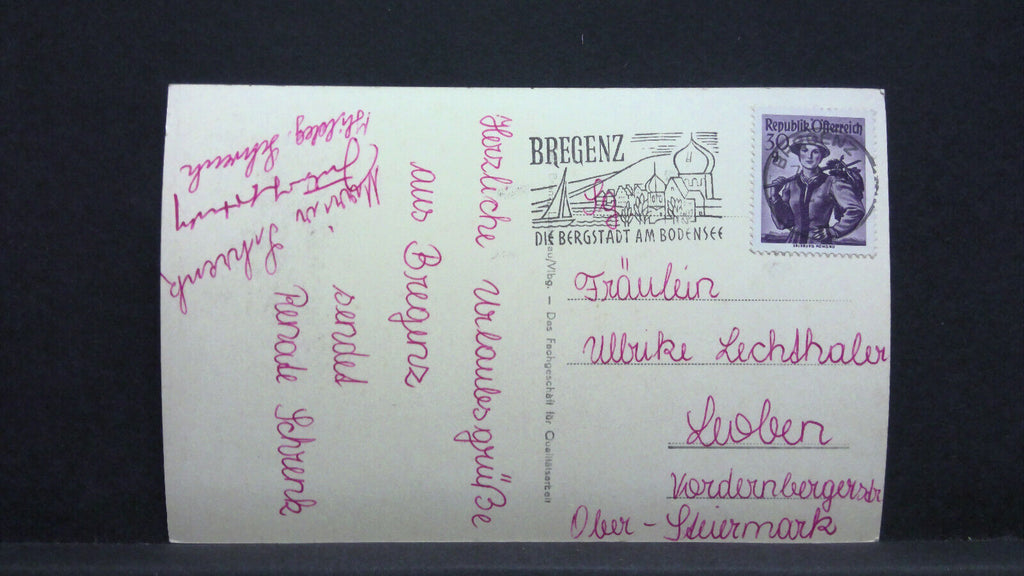 Herzliche Urlaubsgrüße
aus Bregenz
sendet
Renate Schrenk
Schrenk
Hildeg. Schrenk
BREGENZ
DIE BERGSTADT AM BODENSEE
Republik Österreich
30
au/Vlbg. – Das Fachgeschäft für Qualitätsarbeit
Fräulein
Ullrike Lechthaler
Leoben
Vordernbergerstr
Ober-Steiermark